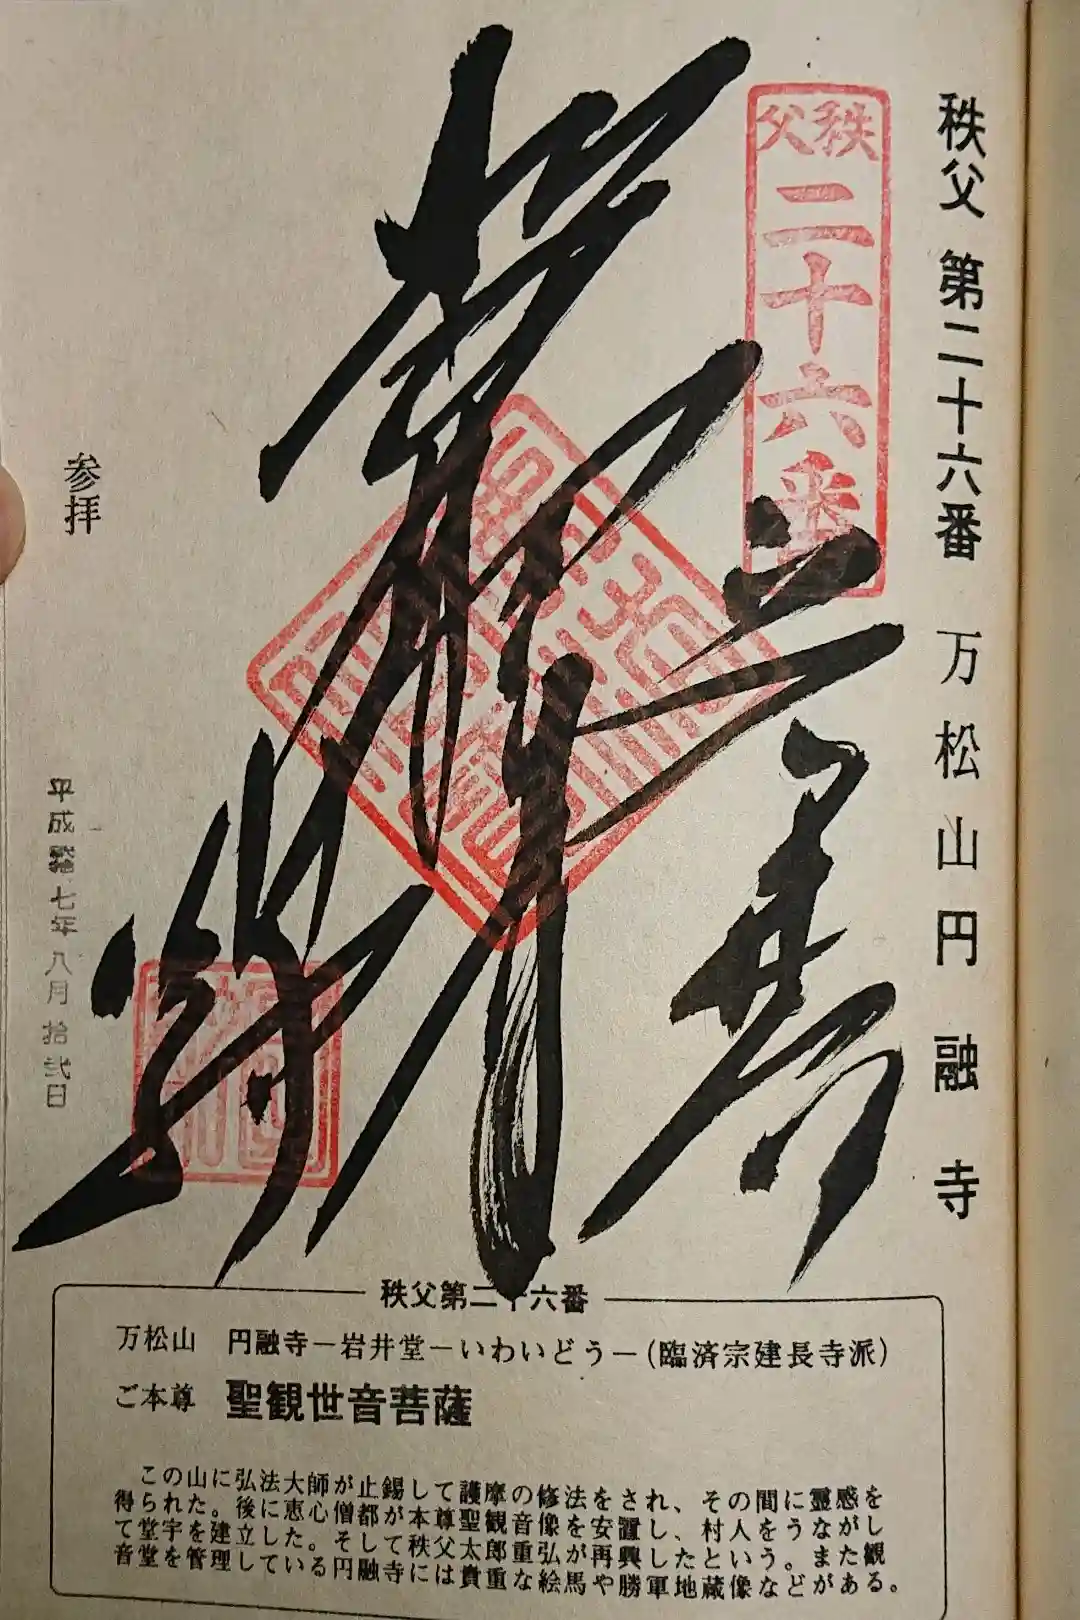 秩父 第二十六番 万松山円融寺
秩父
二十六番
参拝
平成拾七年八月拾弐日
秩父第二十六番
万松山 円融寺－岩井堂－いわいどう－(臨済宗建長寺派)
ご本尊 聖観世音菩薩
この山に弘法大師が止錫して護摩の修法をされ、その間に霊感を
得られた。後に恵心僧都が本尊聖観音像を安置し、村人をうながし
て堂宇を建立した。そして秩父太郎重弘が再興したという。また観
音堂を管理している円融寺には貴重な絵馬や勝軍地蔵像などがある。